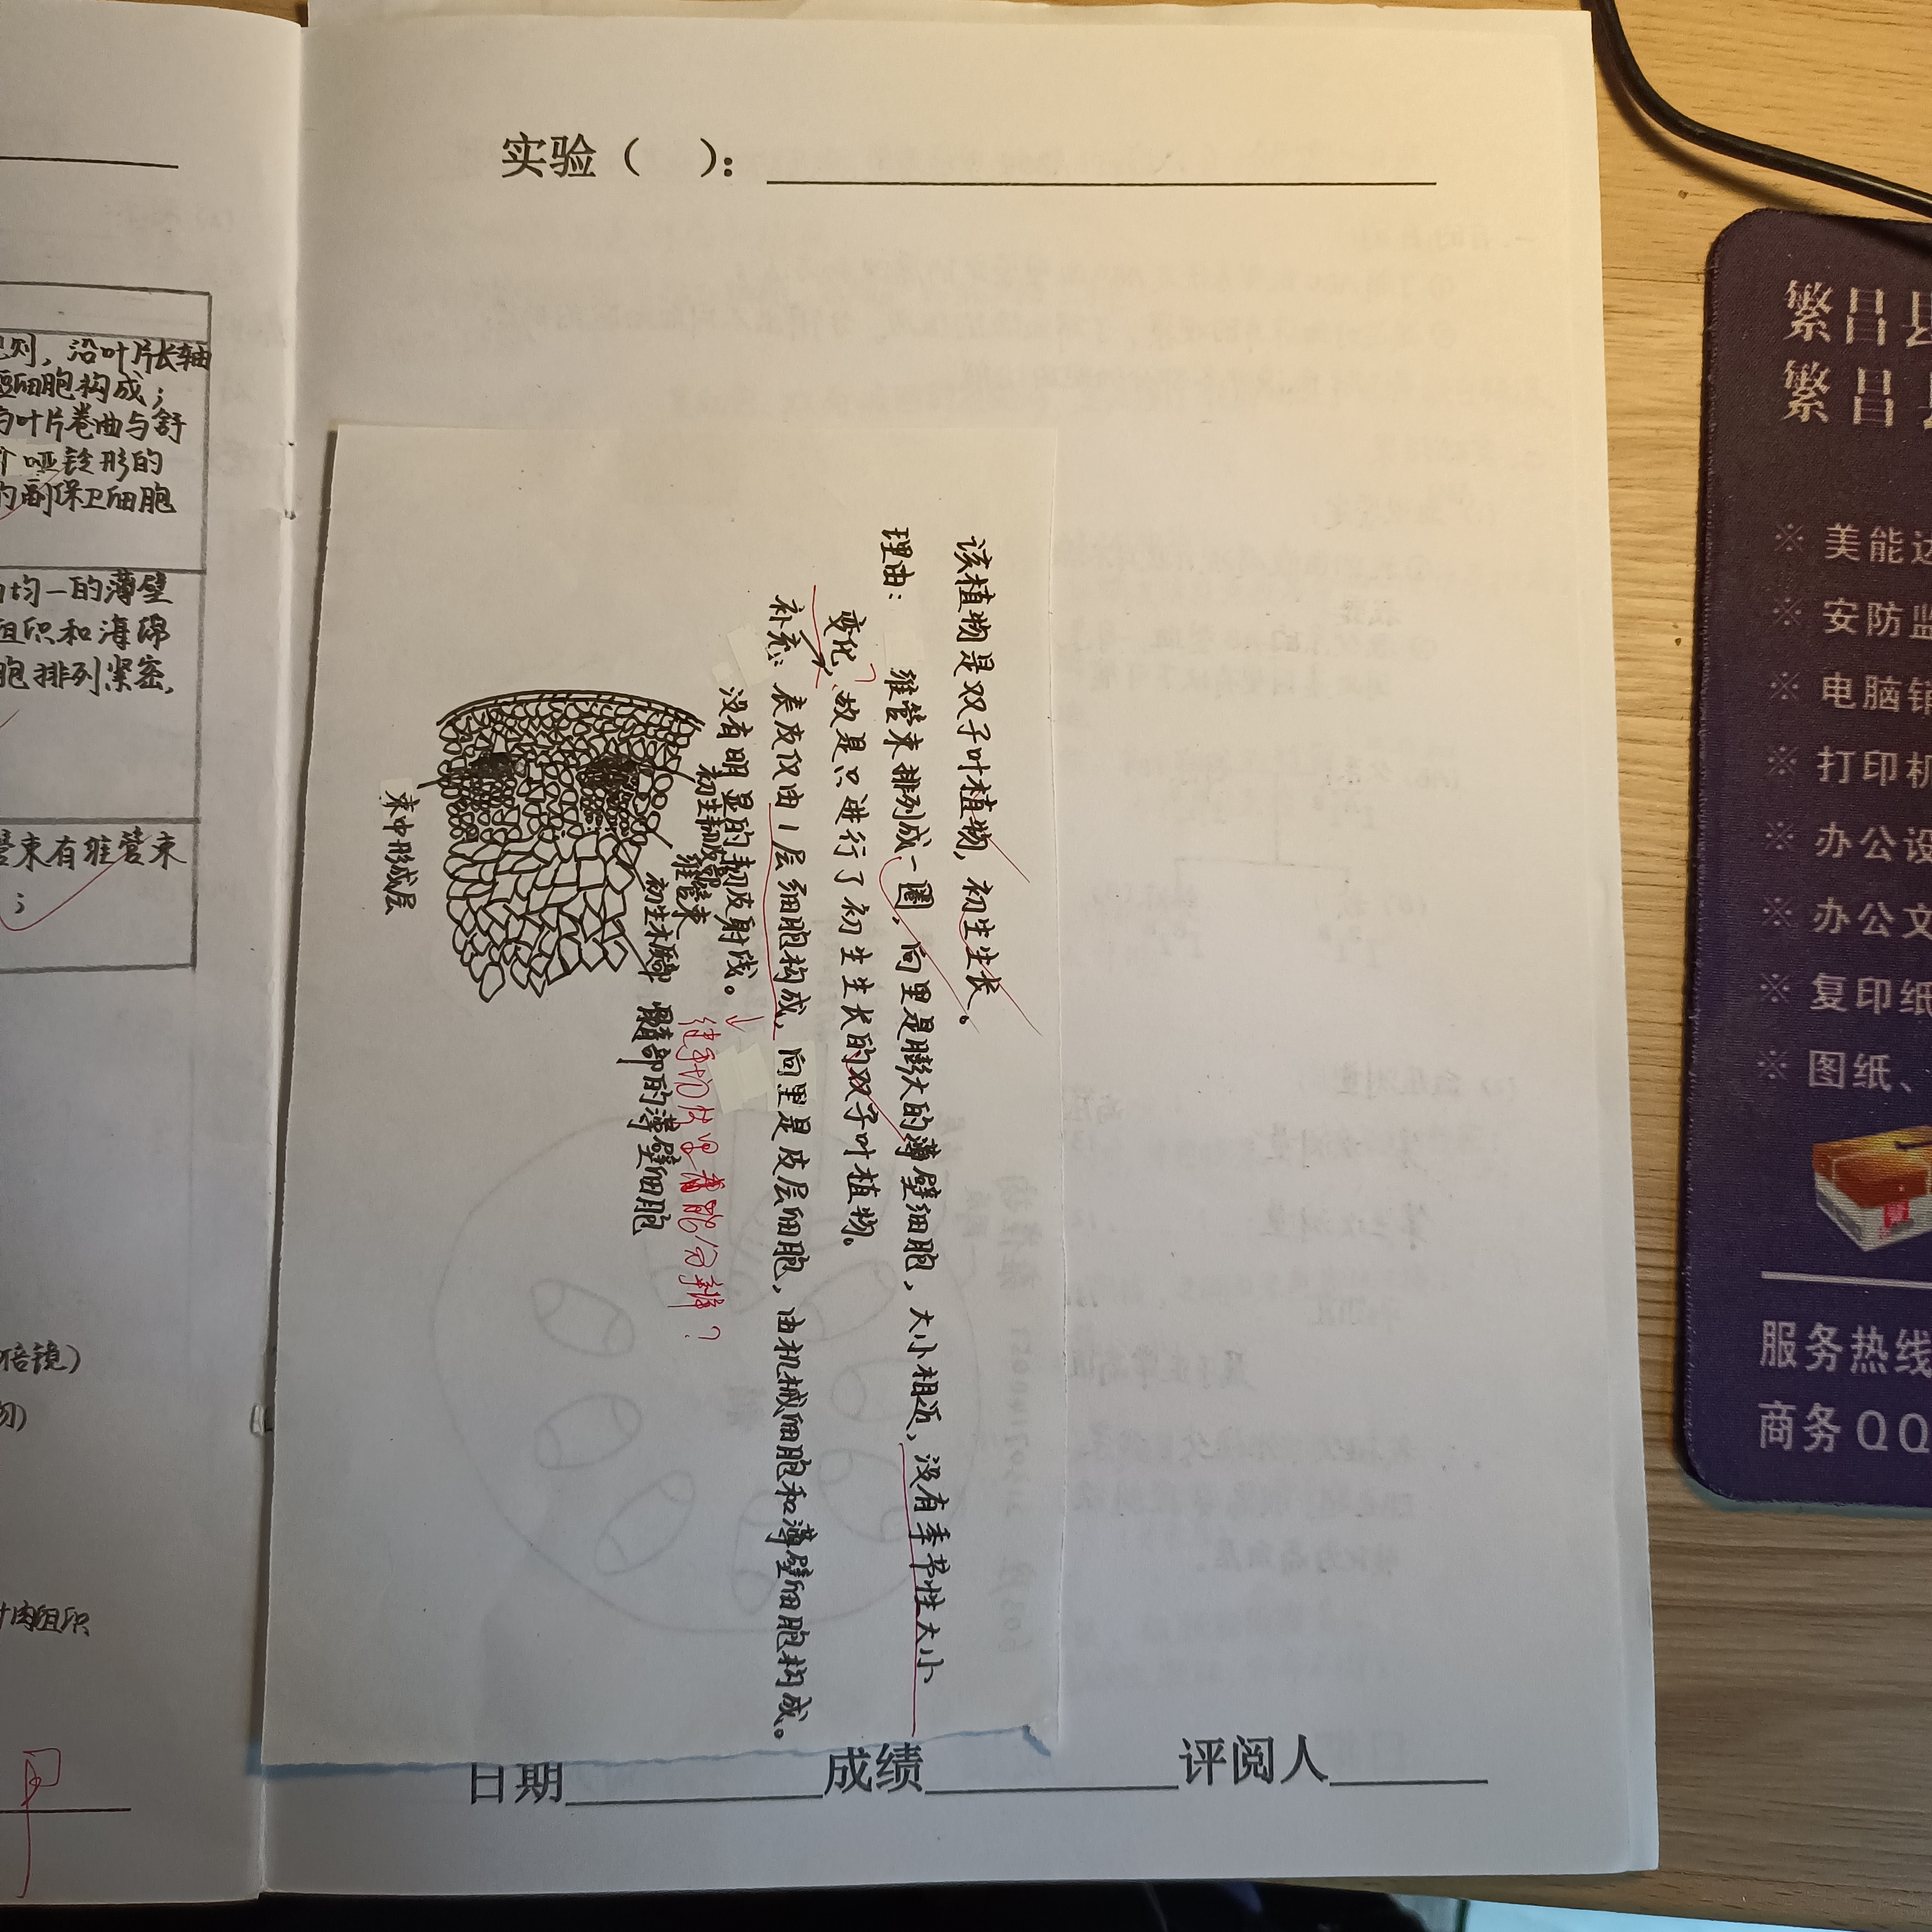 实验（ ）：
则，沿叶片长轴
短细胞构成；
叶片卷曲与舒
个哑铃形的
的副保卫细胞
均一的薄壁
组织和海绵
胞排列紧密，
管束有维管束
；
倍镜）
叶肉组织
该植物是双子叶植物，初生生长。
理由：维管束排列成一圈，向里是膨大的薄壁细胞，大小相近，没有季节性大小
变化，故是只进行了初生生长的双子叶植物。
补充：表皮仅由1层细胞构成，向里是皮层细胞，由机械细胞和薄壁细胞构成。
没有明显的韧皮射线。
徒手切片里看能分辨？
初生韧皮部
维管束
初生木质部
髓部的薄壁细胞
束中形成层
日期 成绩 评阅人
繁昌县
繁昌
※ 美能达
※ 安防监
※ 电脑
※ 打印机
※ 办公设
※ 办公文
※ 复印纸
※ 图纸、
服务热线
商务QQ